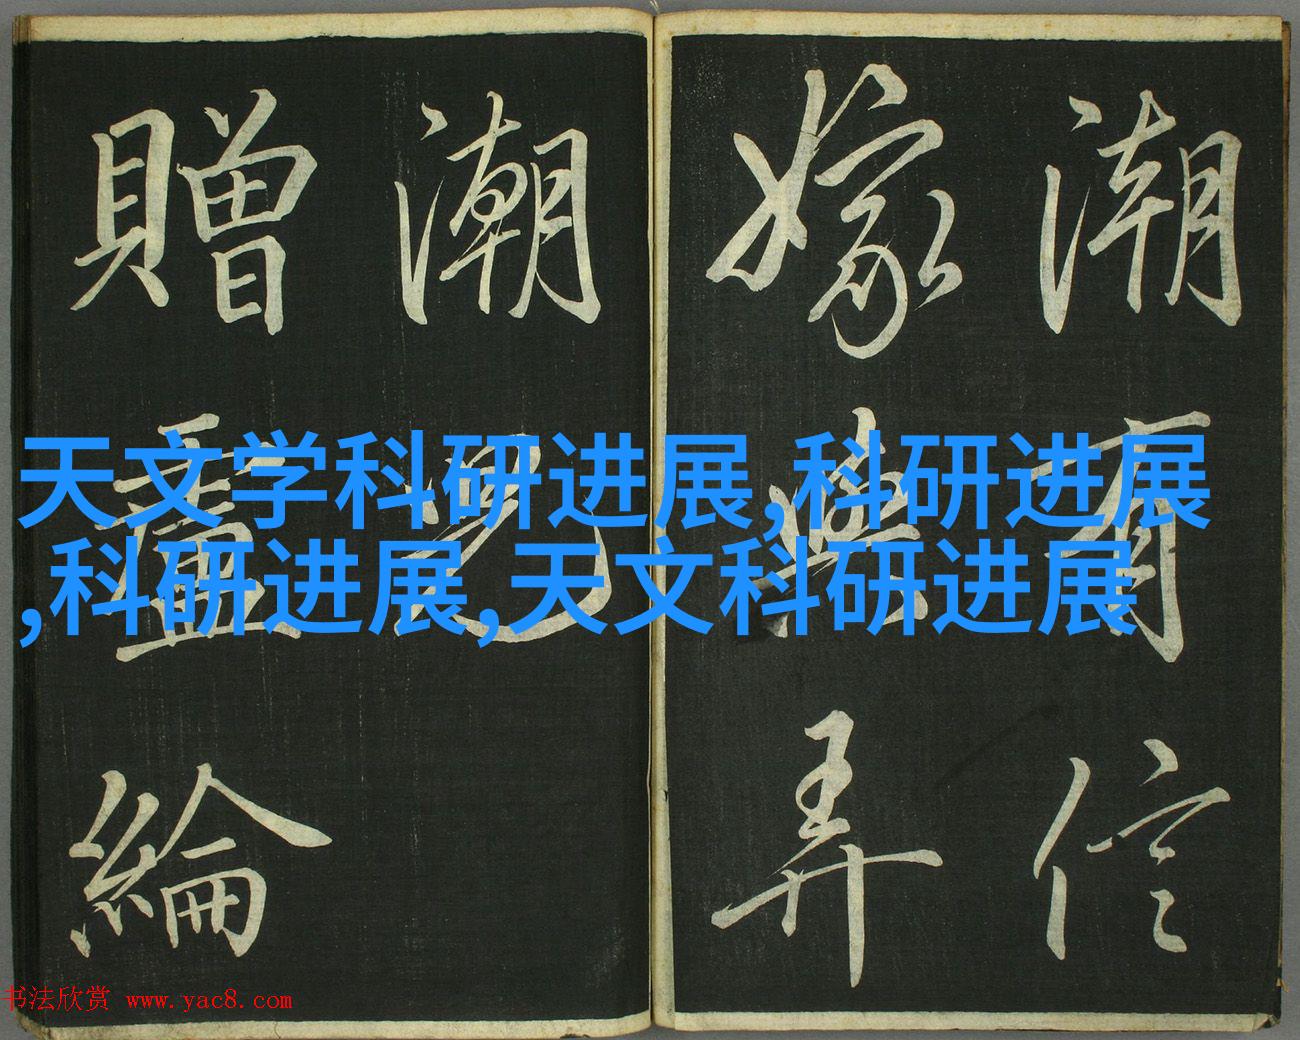 潮有信
嫁與弄
潮兒
贈盧綸
天文学科研进展,科研进展
,科研进展,天文科研进展
书法欣赏 www.yac8.com